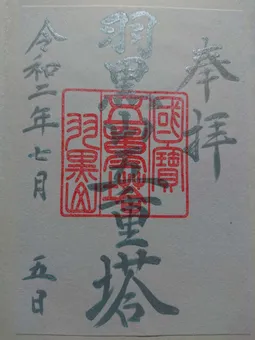 奉拝
羽黒山五重塔
國寶
五重塔
羽黒山
令和二年七月 五日